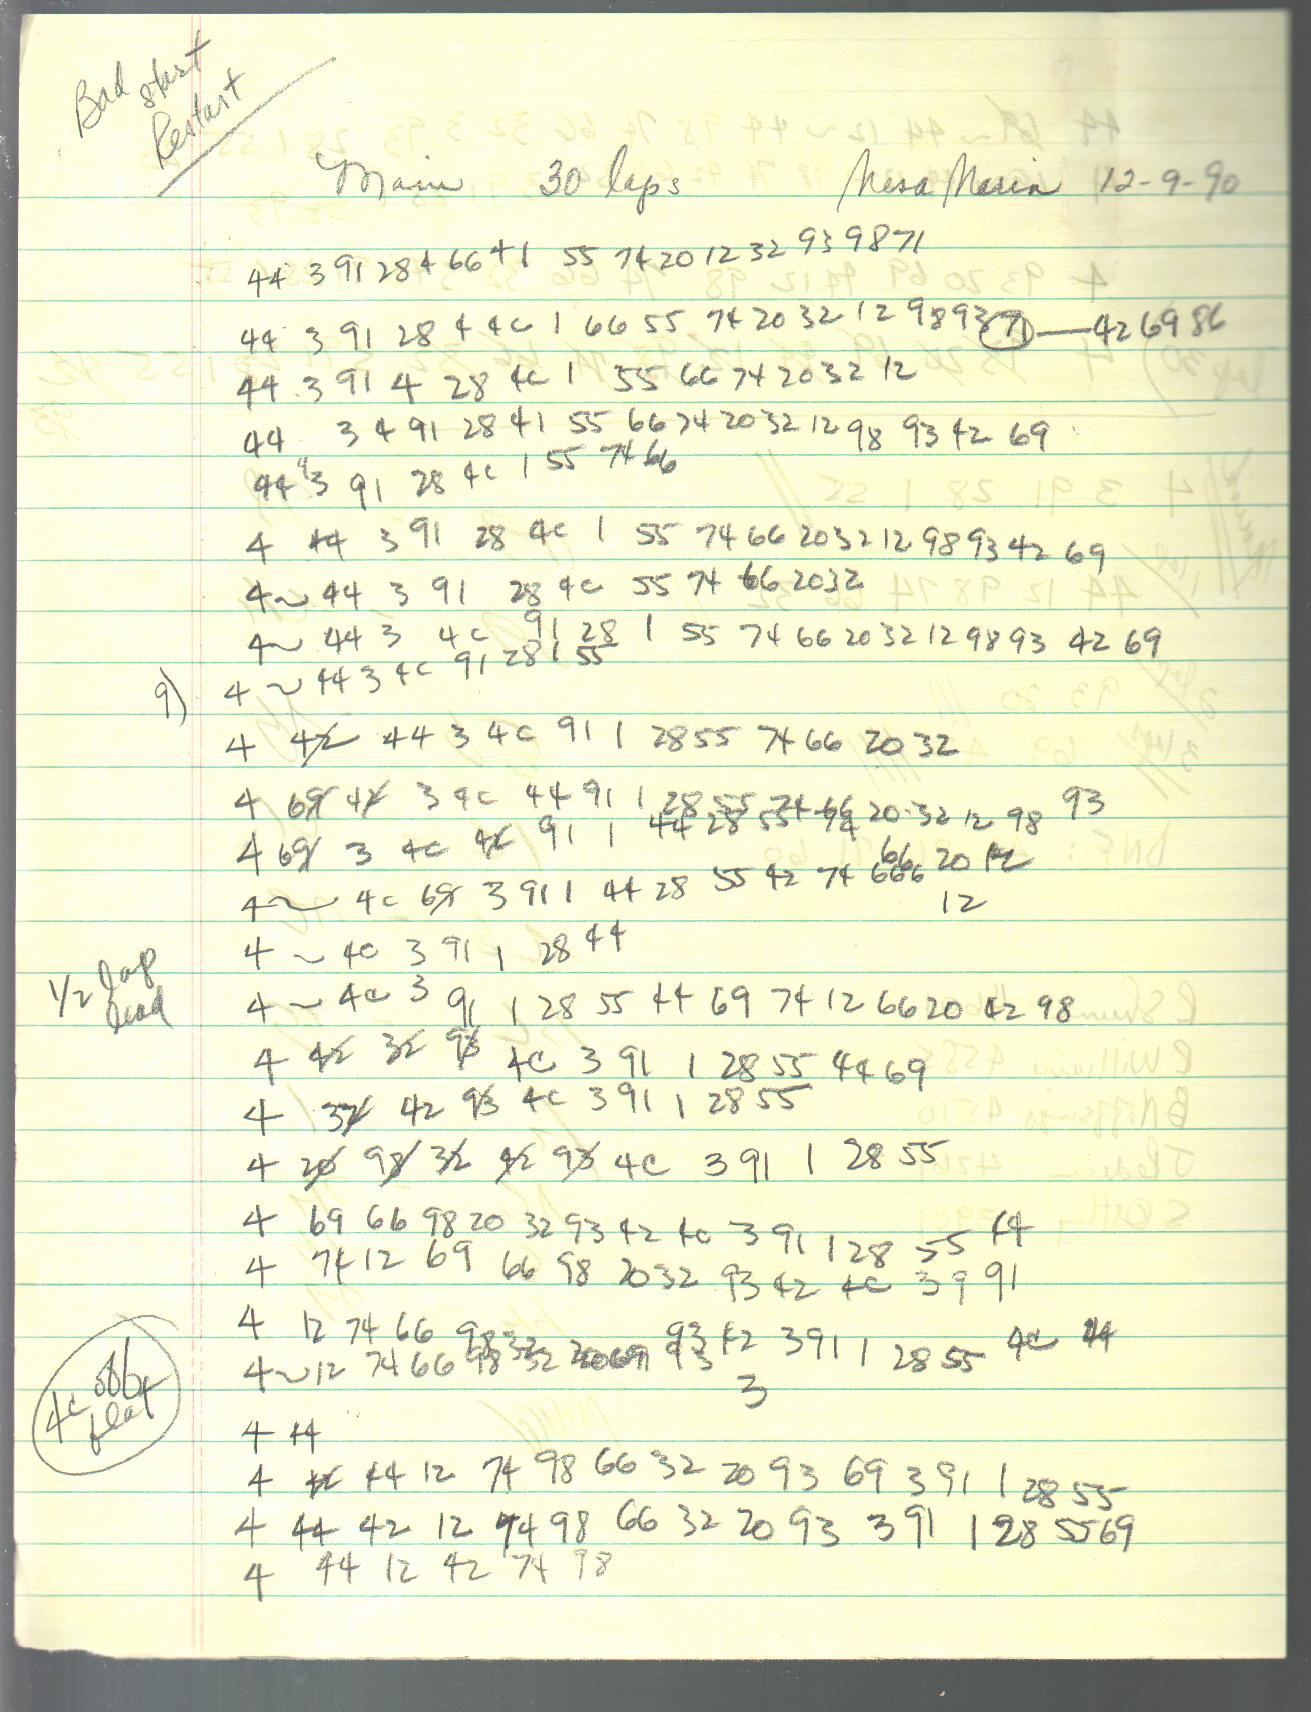 Bad start
Restart
Main 30 laps Mesa Marin 12-9-90
44 3 91 28 4 66 41 55 74 20 12 32 93 98 71
44 3 91 28 4 4c 1 66 55 74 20 32 12 98 93 71 — 42 69 86
44 3 91 4 28 4c 1 55 66 74 20 32 12
44 3 4 91 28 41 55 66 74 20 32 12 98 93 42 69
44 4 3 91 28 4c 1 55 74 66
4 44 3 91 28 4c 1 55 74 66 20 32 12 98 93 42 69
4 ~ 44 3 91 28 4c 55 74 66 20 32
4 ~ 44 3 4c 91 28 1 55 74 66 20 32 12 98 93 42 69
9) 4 ~ 44 3 4c 91 28 1 55
4 42 44 3 4c 91 1 28 55 74 66 20 32
4 69 42 3 4c 44 91 1 28 55 74 66 20 32 12 98 93
4 69 3 4c 42 91 1 44 28 55 74 66 20 12
4 ~ 4c 69 3 91 1 44 28 55 42 74 66 12
4 ~ 4c 3 91 1 28 44
1/2 lap lead
4 ~ 4c 3 91 1 28 55 44 69 74 12 66 20 42 98
4 42 32 93 4c 3 91 1 28 55 44 69
4 32 42 93 4c 3 91 1 28 55
4 20 98 32 42 93 4c 3 91 1 28 55
4 69 66 98 20 32 93 42 4c 3 91 1 28 55 44
4 74 12 69 66 98 20 32 93 42 4c 3 9 91
4 12 74 66 98 32 93 42 3 91 1 28 55 4c 44
4 ~ 12 74 66 98 32 20 69 93 3
4c off flat
4 44
4 44 12 74 98 66 32 20 93 69 3 91 1 28 55
4 44 42 12 74 98 66 32 20 93 3 91 1 28 55 69
4 44 12 42 74 98